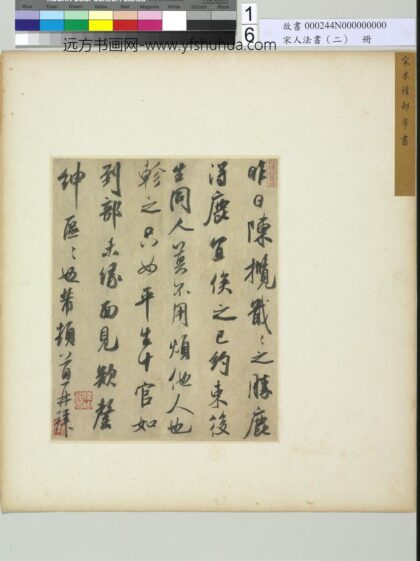 Blue
Cyan
Green
Yellow
Red
Magenta
White
3/Color
Black
远方书画网-www.yfshuhua.com
1
6
故書 000244N000000000
宋人法書（二） 冊
宋米禮部芾書
昨日陳攬戢々之勝鹿
得鹿宜俟之已約束後
生同人莫不用煩他人也
軫之只如平生十官如
到部未緣面見欵罄
紳區々也芾頓首再拜